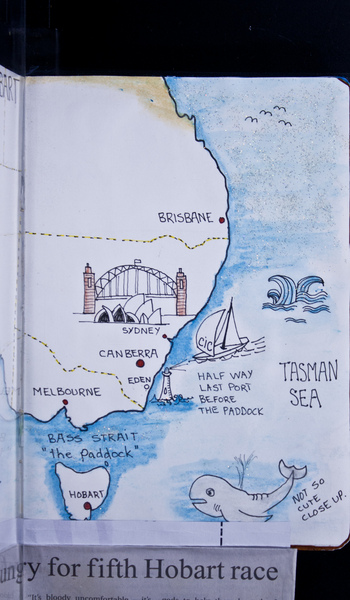 BART
BRISBANE
SYDNEY
CIC
CANBERRA
EDEN
HALF WAY
LAST PORT
BEFORE
THE PADDOCK
TASMAN
SEA
MELBOURNE
BASS STRAIT
"the Paddock"
HOBART
NOT SO
CUTE
CLOSE UP.
ungry for fifth Hobart race
"It's bloody uncomfortable